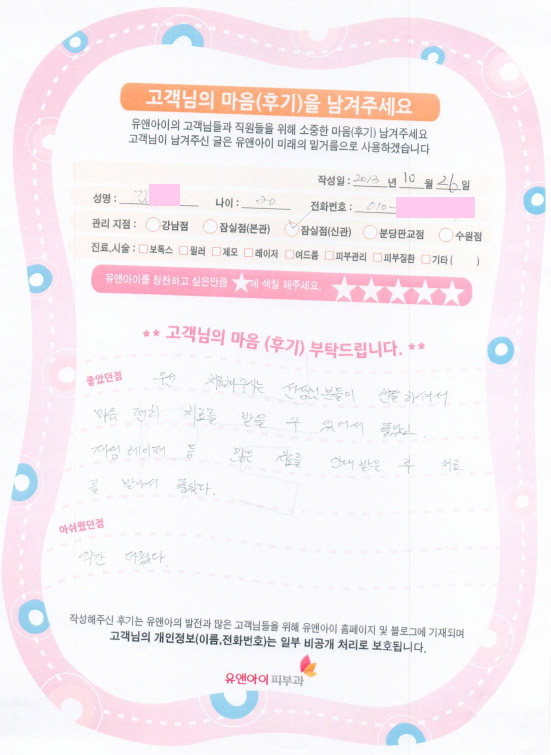 고객님의 마음(후기)을 남겨주세요
유앤아이의 고객님들과 직원들을 위해 소중한 마음(후기) 남겨주세요
고객님이 남겨주신 글은 유앤아이 미래의 밑거름으로 사용하겠습니다
작성일 : 2013 년 10 월 26 일
성명 : 김 나이 : 20 전화번호 : 010-
관리 지점 : 강남점 잠실점(본관) 잠실점(신관) 분당판교점 수원점
진료,시술 : 보톡스 필러 제모 레이저 여드름 피부관리 피부질환 기타 ( )
유앤아이를 칭찬하고 싶은만큼 ★에 색칠 해주세요. ★★★★★
** 고객님의 마음 (후기) 부탁드립니다. **
좋았던점
우선 치료해주시는 선생님분들이 친절하셔서
마음 편히 치료를 받을 수 있어서 좋았고
레이저 등 많은 안내 받은 후 치료
를 받아서 좋았다.
아쉬웠던점
약간 더웠다.
작성해주신 후기는 유앤아의 발전과 많은 고객님들을 위해 유앤아이 홈페이지 및 블로그에 기재되며
고객님의 개인정보(이름,전화번호)는 일부 비공개 처리로 보호됩니다.
유앤아이 피부과